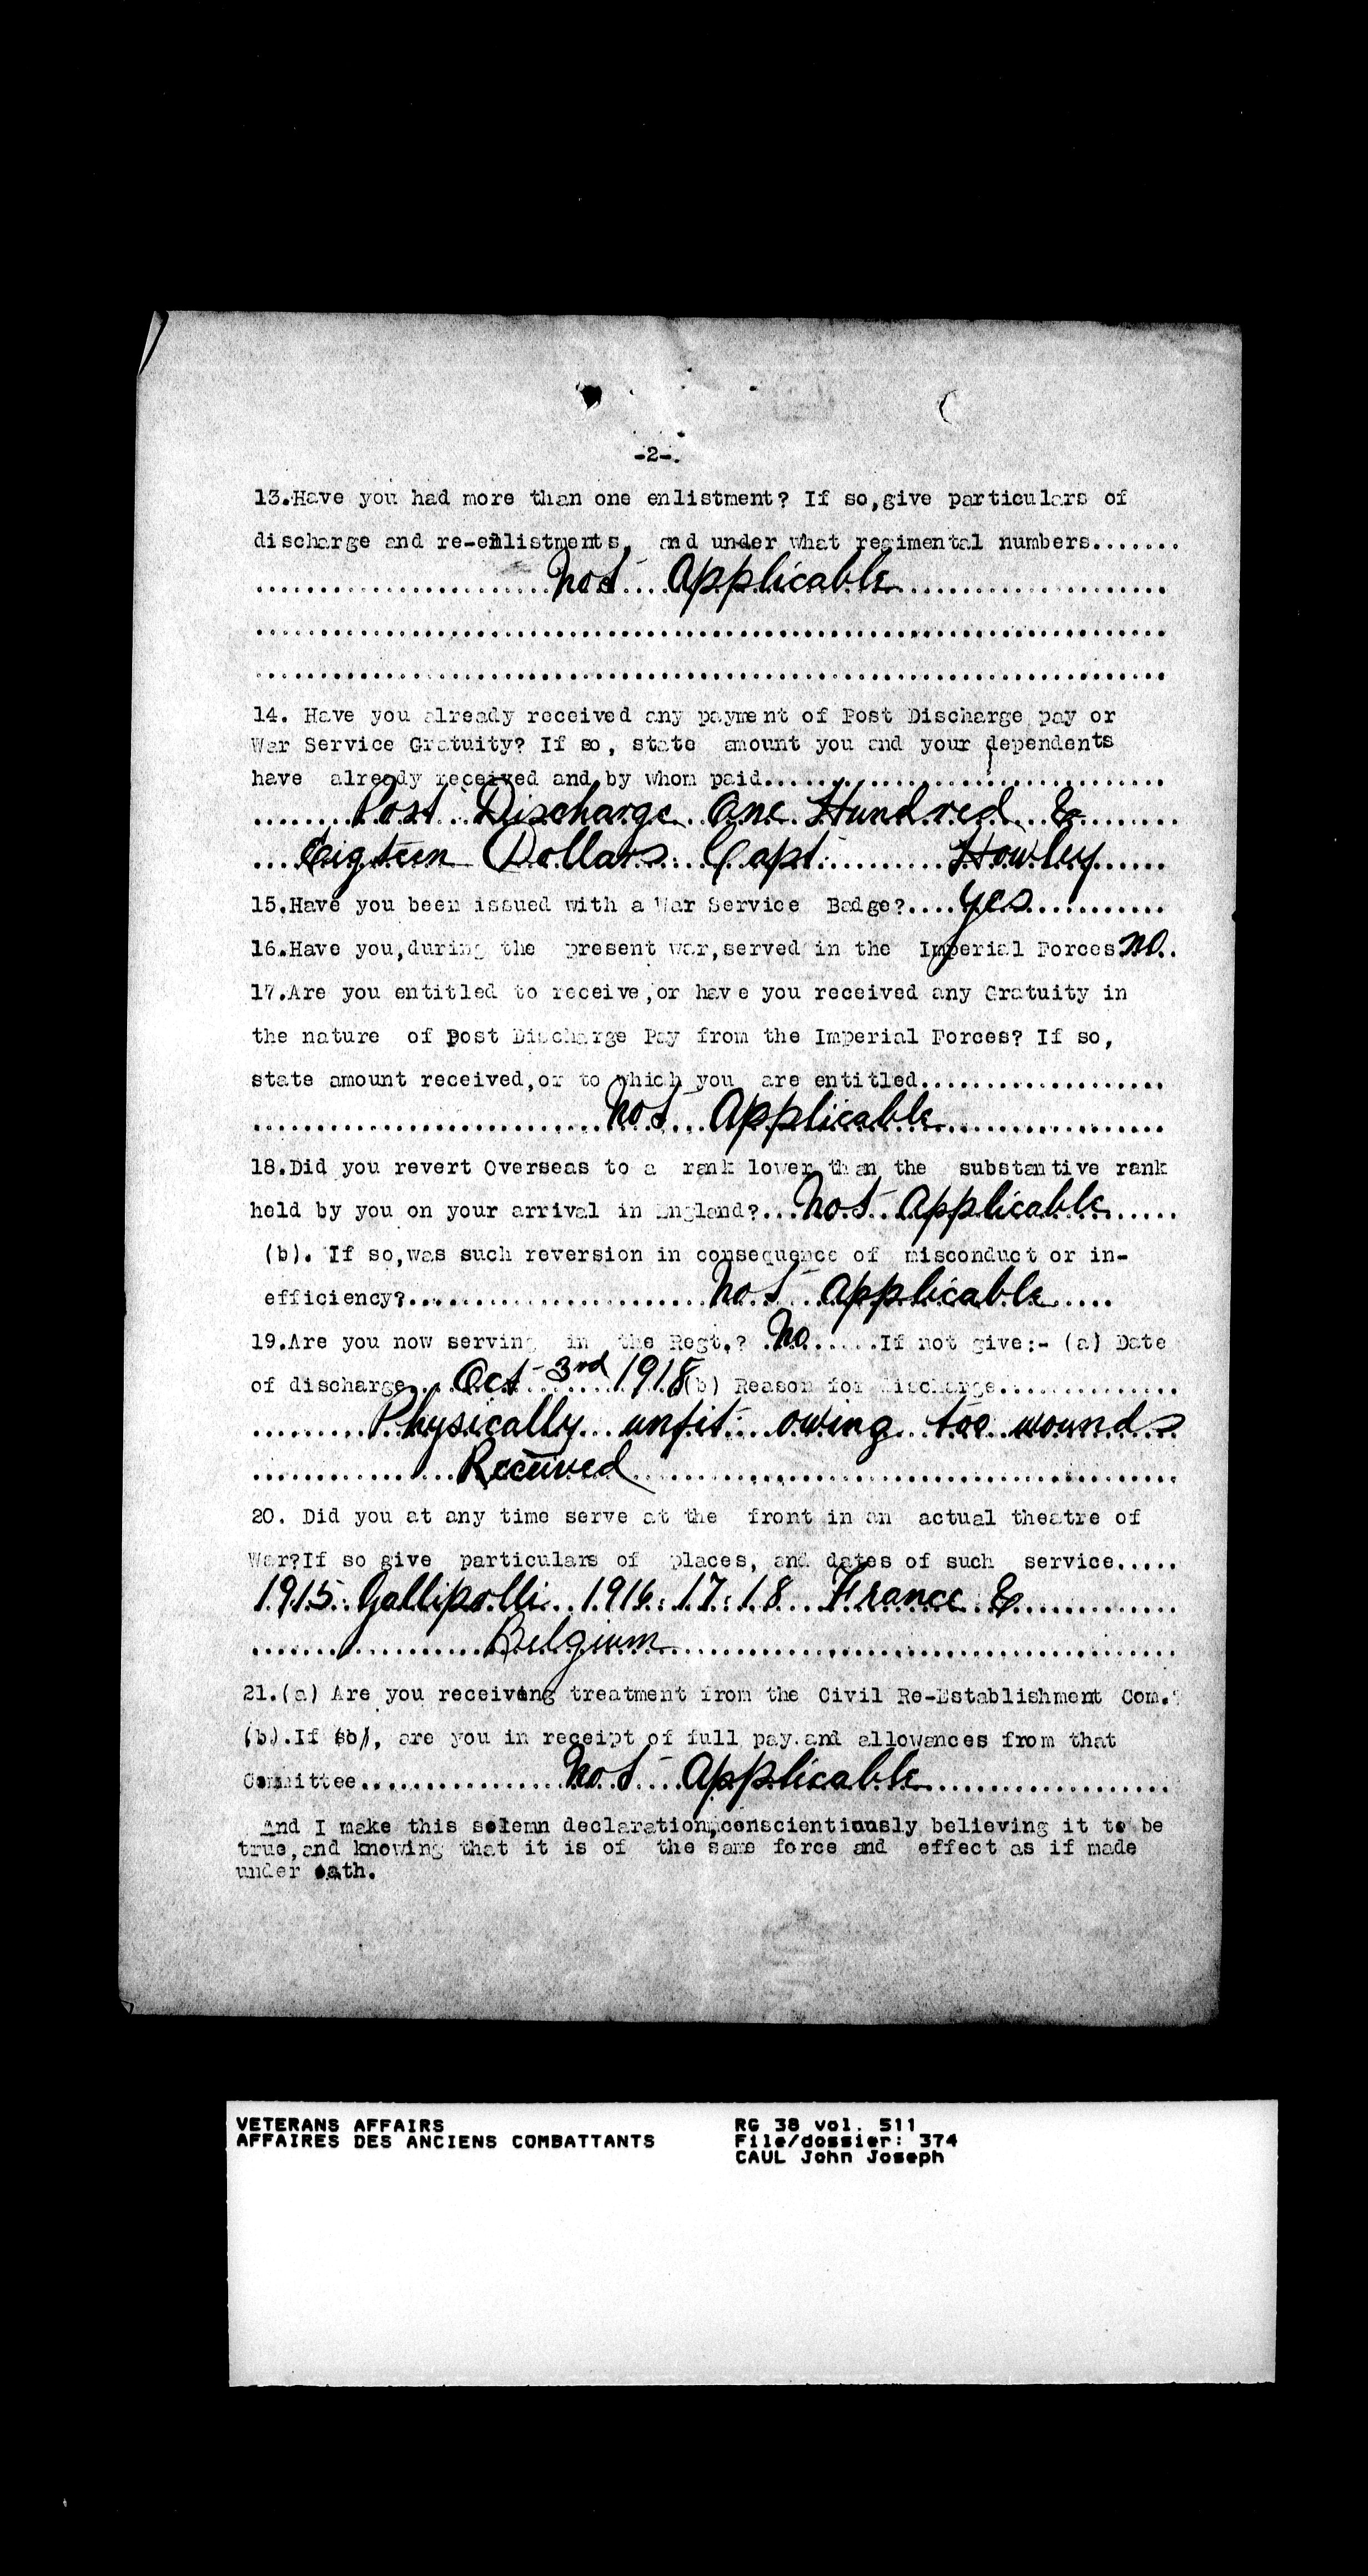 -2-.
13.Have you had more than one enlistment? If so,give particulars of
discharge and re-enlistments, and under what regimental numbers.......
Not Applicable
14. Have you already received any payment of Post Discharge pay or
War Service Gratuity? If so, state amount you and your dependents
have already received and by whom paid....................
Post Discharge One Hundred &
Eigteen Dollars. Capt. Howley
15.Have you been issued with a War Service Badge?....yes...........
16.Have you,during the present war,served in the Imperial Forces no..
17.Are you entitled to receive,or have you received any Gratuity in
the nature of Post Discharge Pay from the Imperial Forces? If so,
state amount received,or to which you are entitled...................
Not Applicable
18.Did you revert Overseas to a rank lower than the substantive rank
held by you on your arrival in England?...Not Applicable......
(b). If so,was such reversion in consequence of misconduct or in-
efficiency?.......................Not Applicable.....
19.Are you now serving in the Regt.? .No......If not give:- (a) Date
of discharge...Oct 3rd 1918(b) Reason for discharge..............
Physically unfit owing too wounds
Received
20. Did you at any time serve at the front in an actual theatre of
War?If so give particulars of places, and dates of such service.....
1915. Gallipolli. 1916. 17. 18 France &
Belgium
21.(a) Are you receiving treatment from the Civil Re-Establishment Com.?
(b).If so, are you in receipt of full pay.and allowances from that
Committee................Not Applicable...................
And I make this solemn declaration,conscientiously believing it to be
true,and knowing that it is of the same force and effect as if made
under oath.
VETERANS AFFAIRS RG 38 vol. 511
AFFAIRES DES ANCIENS COMBATTANTS File/dossier: 374
CAUL John Joseph